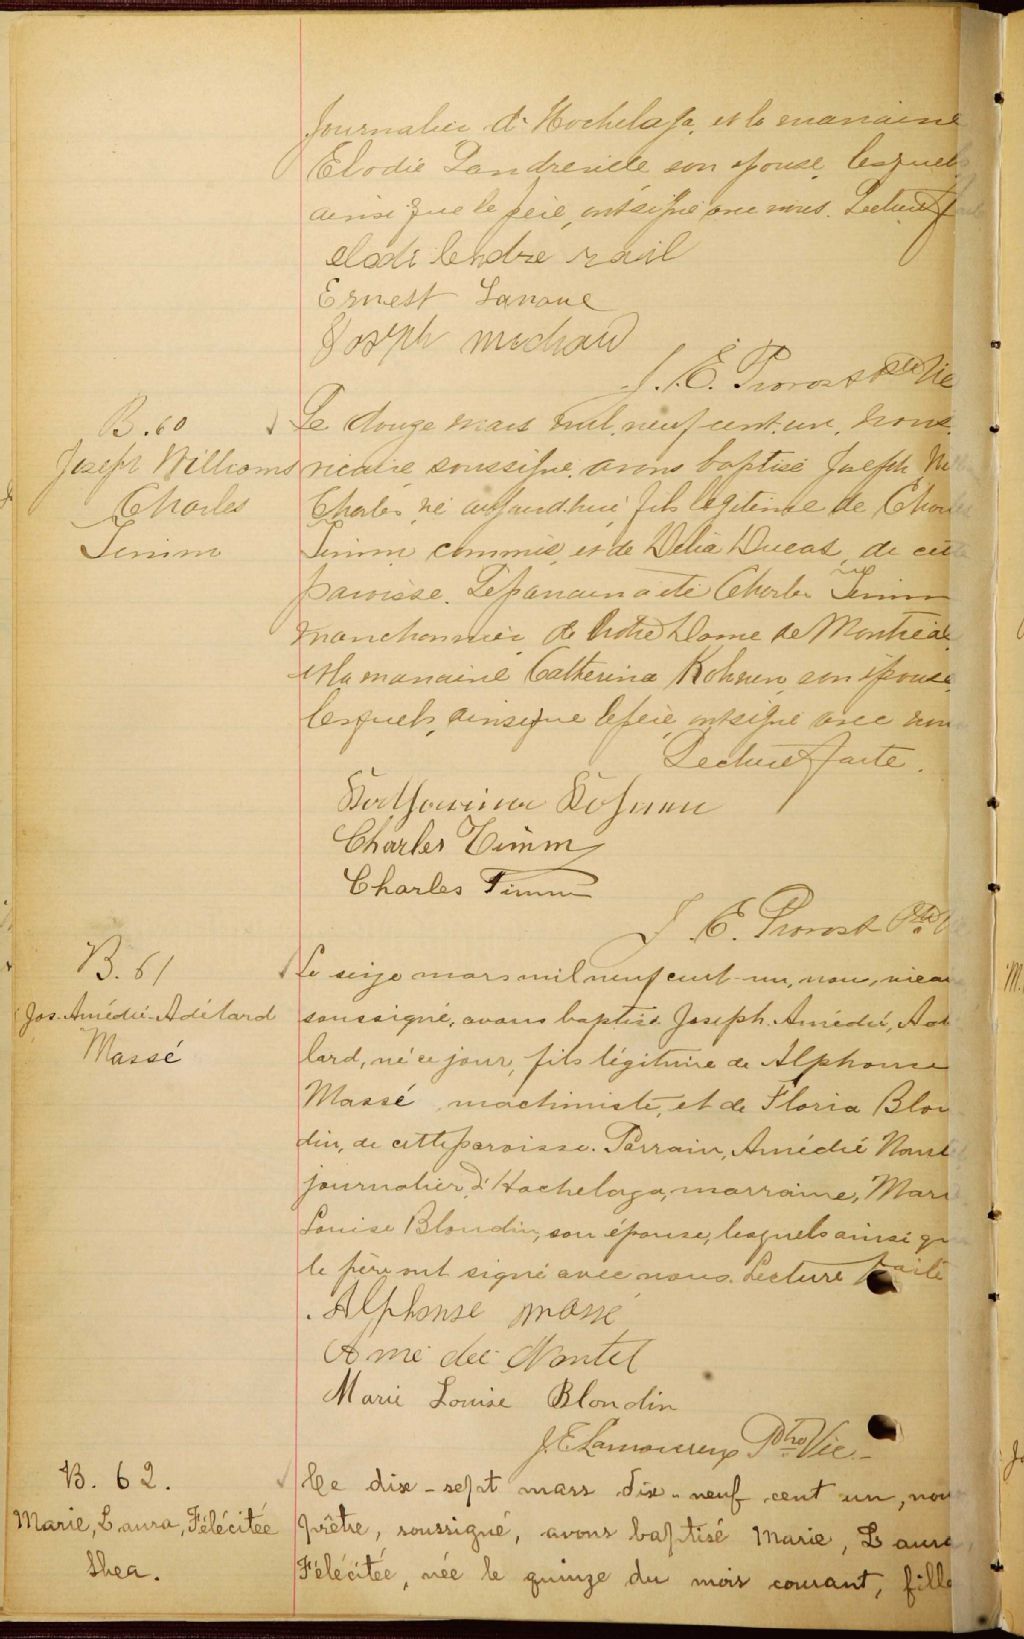 Journalier d'Hochelaga, et la marraine
Elodie Landreville son épouse, lesquels
ainsi que le père, ont signé avec nous. Lecture faite
elodi lendre vail
Ernest Lanoue
Joseph
J. E. Provost Ptre Vic
B. 60
Joseph Williams
Charles
Timm
Le douze mars mil neuf cent un, nous
vicaire soussigné, avons baptisé Joseph,
Charles né aujourd'hui fils légitime de Charles
Timm commis, et de Délia Ducas, de cette
paroisse. Le parrain a été Charles Timm
manchonnier de Notre Dame de Montréal
et la marraine Catherina Kohnen, son épouse,
lesquels, ainsi que le père, ont signé avec nous
Lecture faite.
Katharina Kohnen
Charles Timm
Charles Timm
J. E. Provost Ptre V
B. 61
Jos. Amédé Adélard
Massé
Le seize mars mil neuf cent-un, nous, vicaire
soussigné, avons baptisé Joseph, Amédé, Adé
lard, né ce jour, fils légitime de Alphonse
Massé, machiniste, et de Floria Blon
din, de cette paroisse. Parrain, Amédé Nantel
journalier d'Hochelaga, marraine, Marie
Louise Blondin, son épouse, lesquels ainsi que
le père ont signé avec nous. Lecture faite
Alphonse massé
Amédée Nantel
Marie Louise Blondin
J E Lamoureux Ptre Vic
B. 62.
Marie, Laura, Félécitée
Shea.
Le dix-sept mars dix-neuf cent un, nous
prêtre, soussigné, avons baptisé Marie, Laura,
Félécitée, née le quinze du mois courant, fille